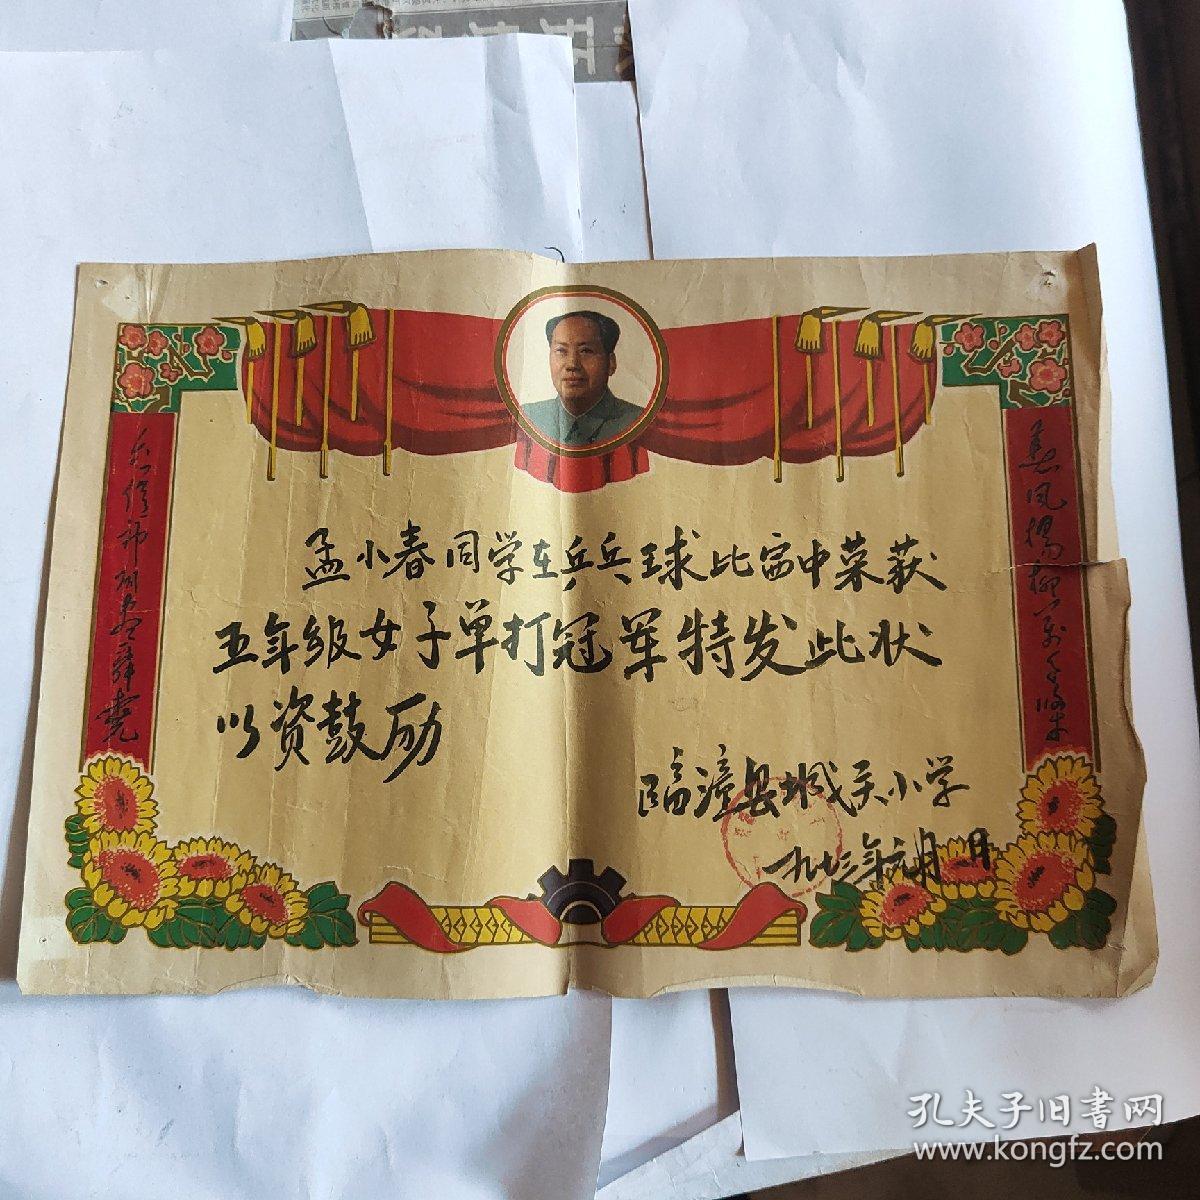 春风杨柳万千条
六亿神州尽舜尧
孟小春同学在乒乓球比赛中荣获
五年级女子单打冠军特发此状
以资鼓励
临漳县城关小学
一九七三年元月 日
孔夫子旧书网
www.kongfz.com